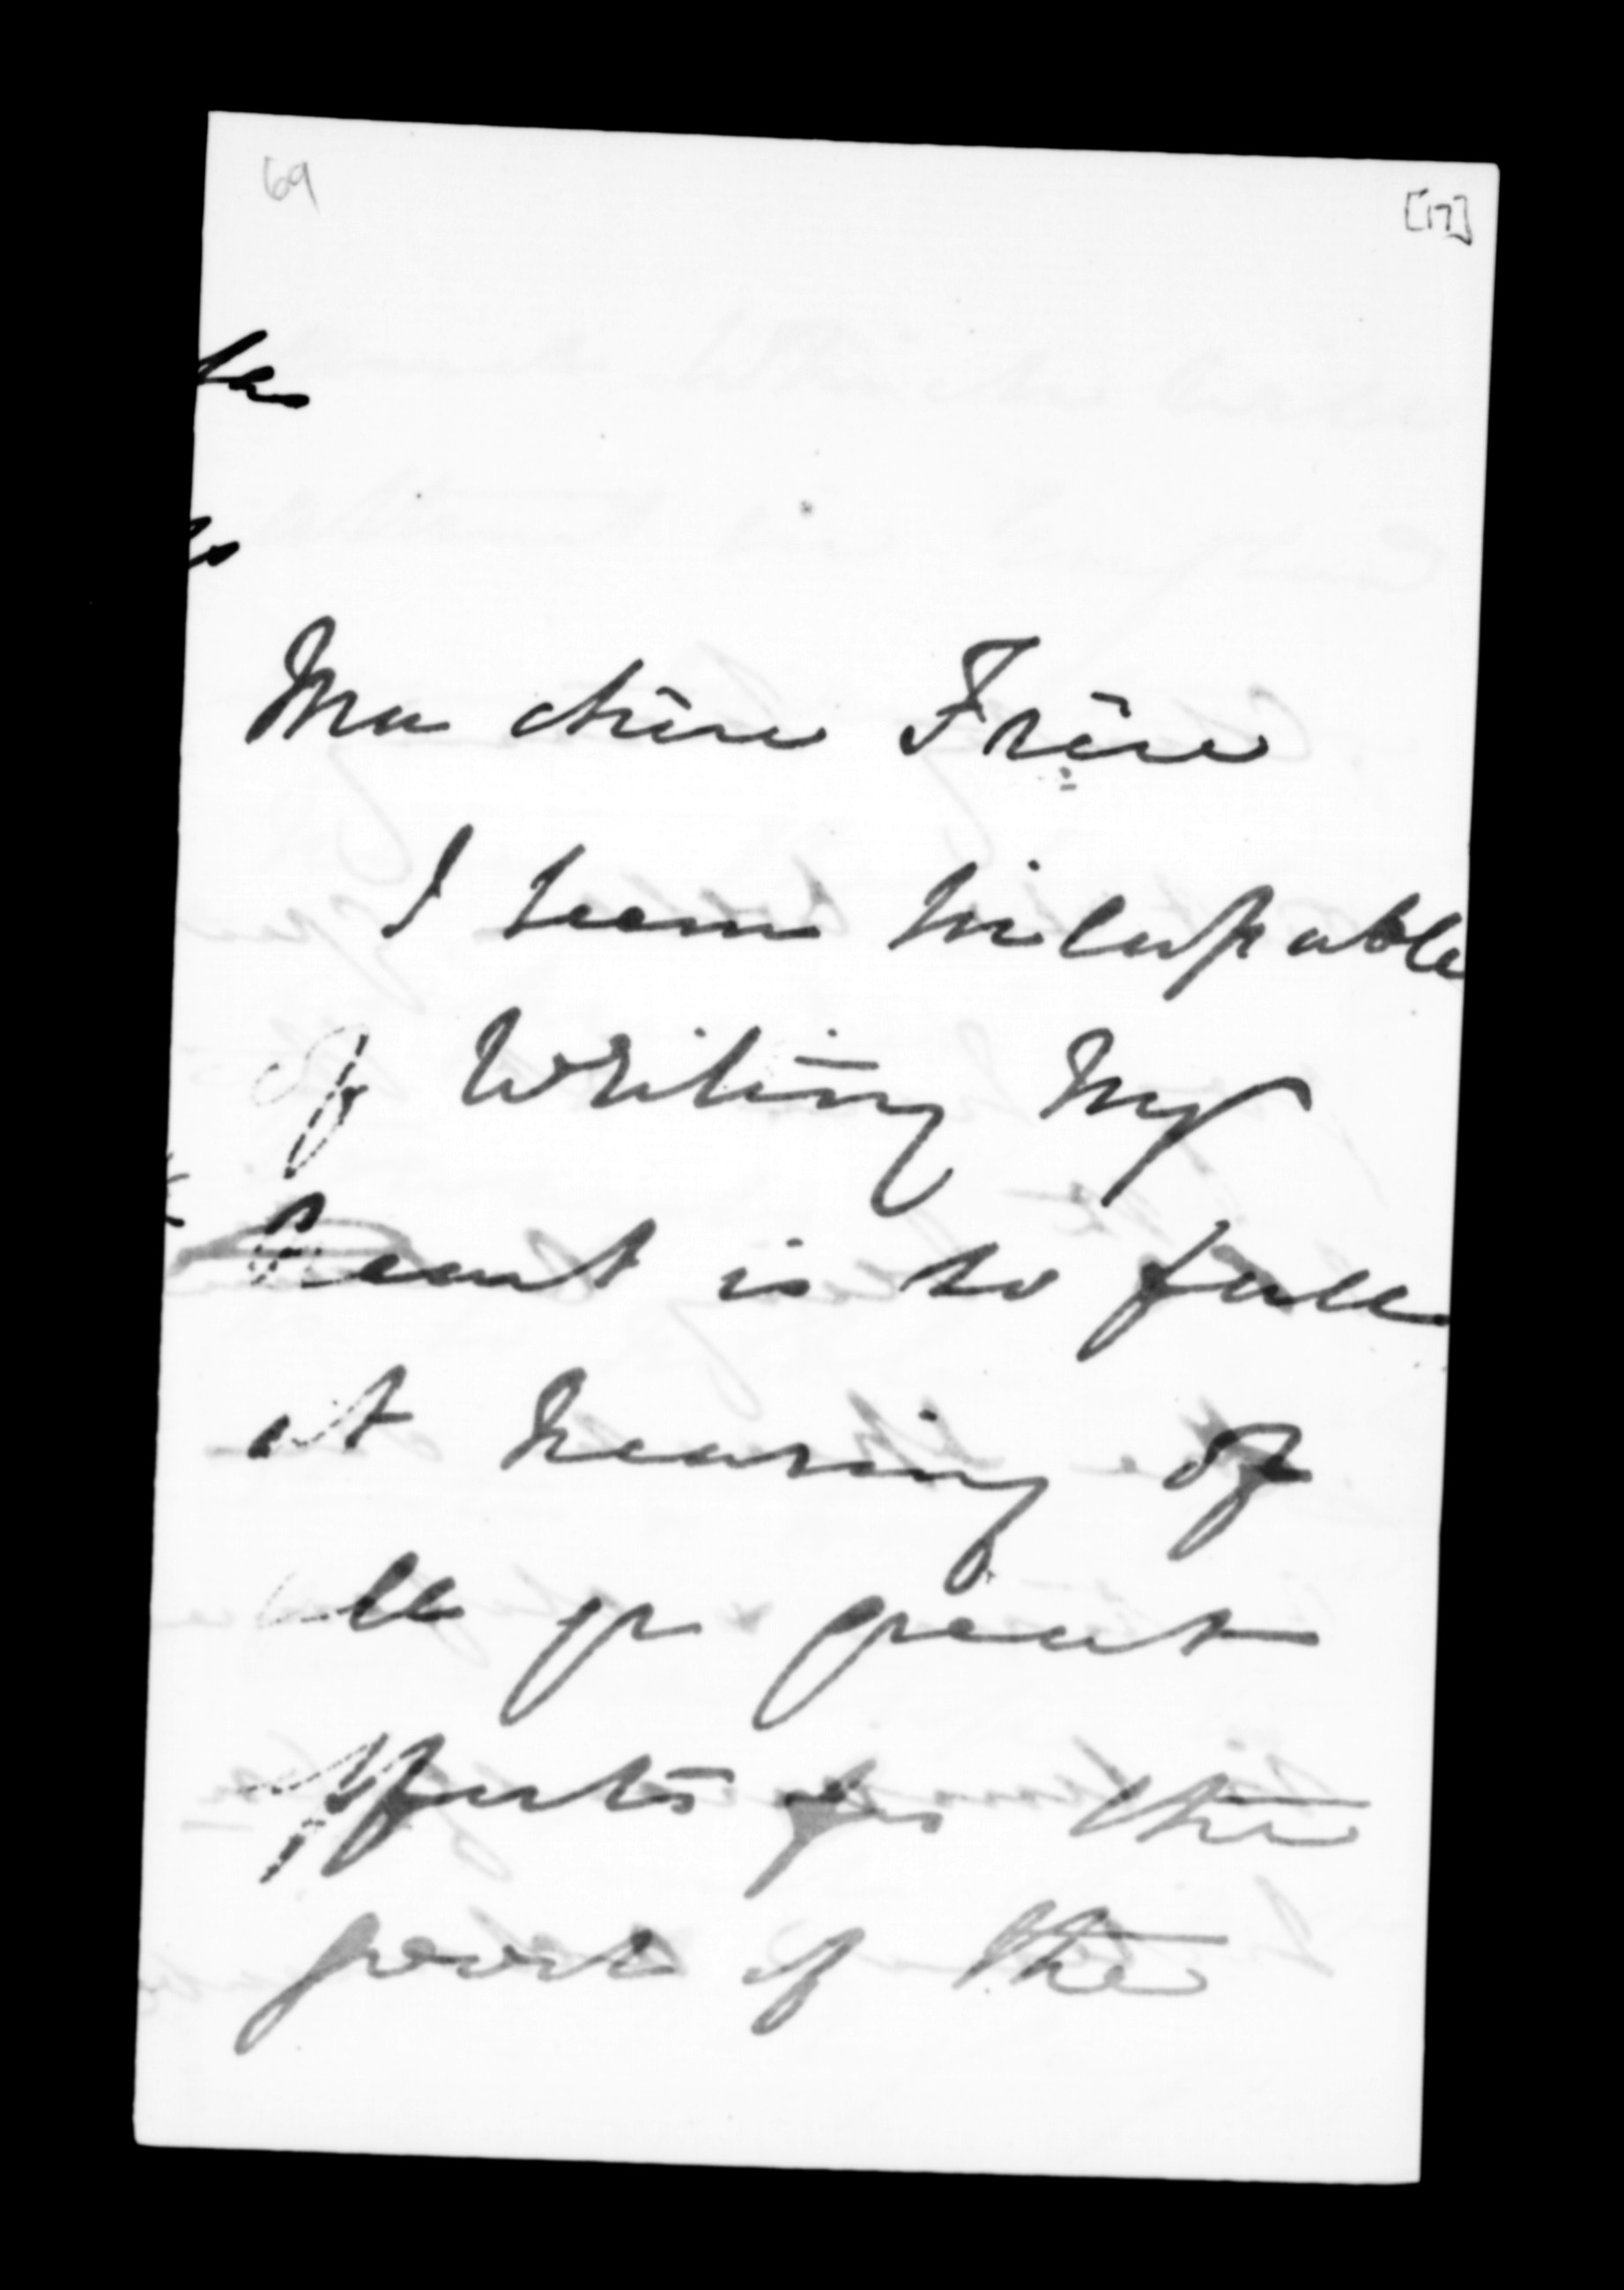 69 [17]
Ma chère Frère
I seem incapable
of writing my
heart is so full
at hearing of
all yr great
efforts for the
good of the